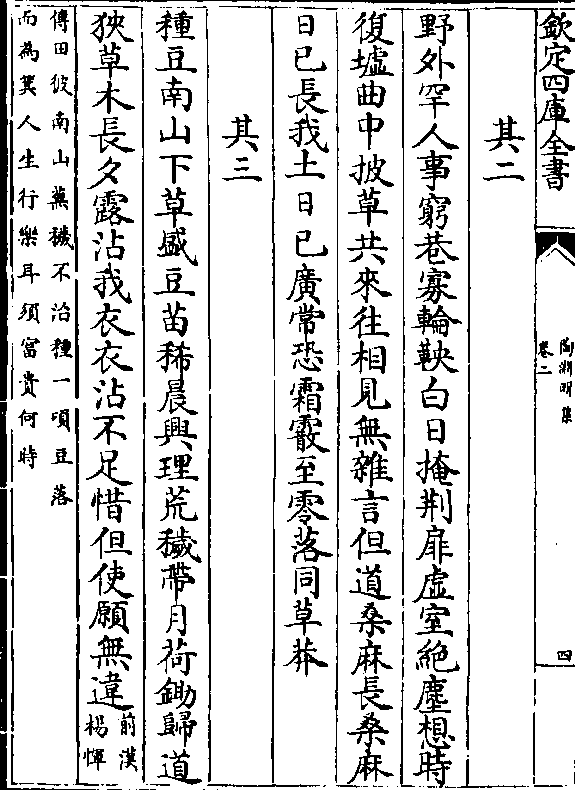 欽定四庫全書
陶淵明集
卷二
四
其二
野外罕人事窮巷寡輪鞅白日掩荆扉虚室絶塵想時
復墟曲中披草共來往相見無雜言但道桑麻長桑麻
日已長我土日已廣常恐霜霰至零落同草莽
其三
種豆南山下草盛豆苗稀晨興理荒穢帶月荷鋤歸道
狹草木長夕露沾我衣衣沾不足惜但使願無違
前漢
楊惲
傳田彼南山蕪穢不治種一頃豆落
而為萁人生行樂耳須富貴何時